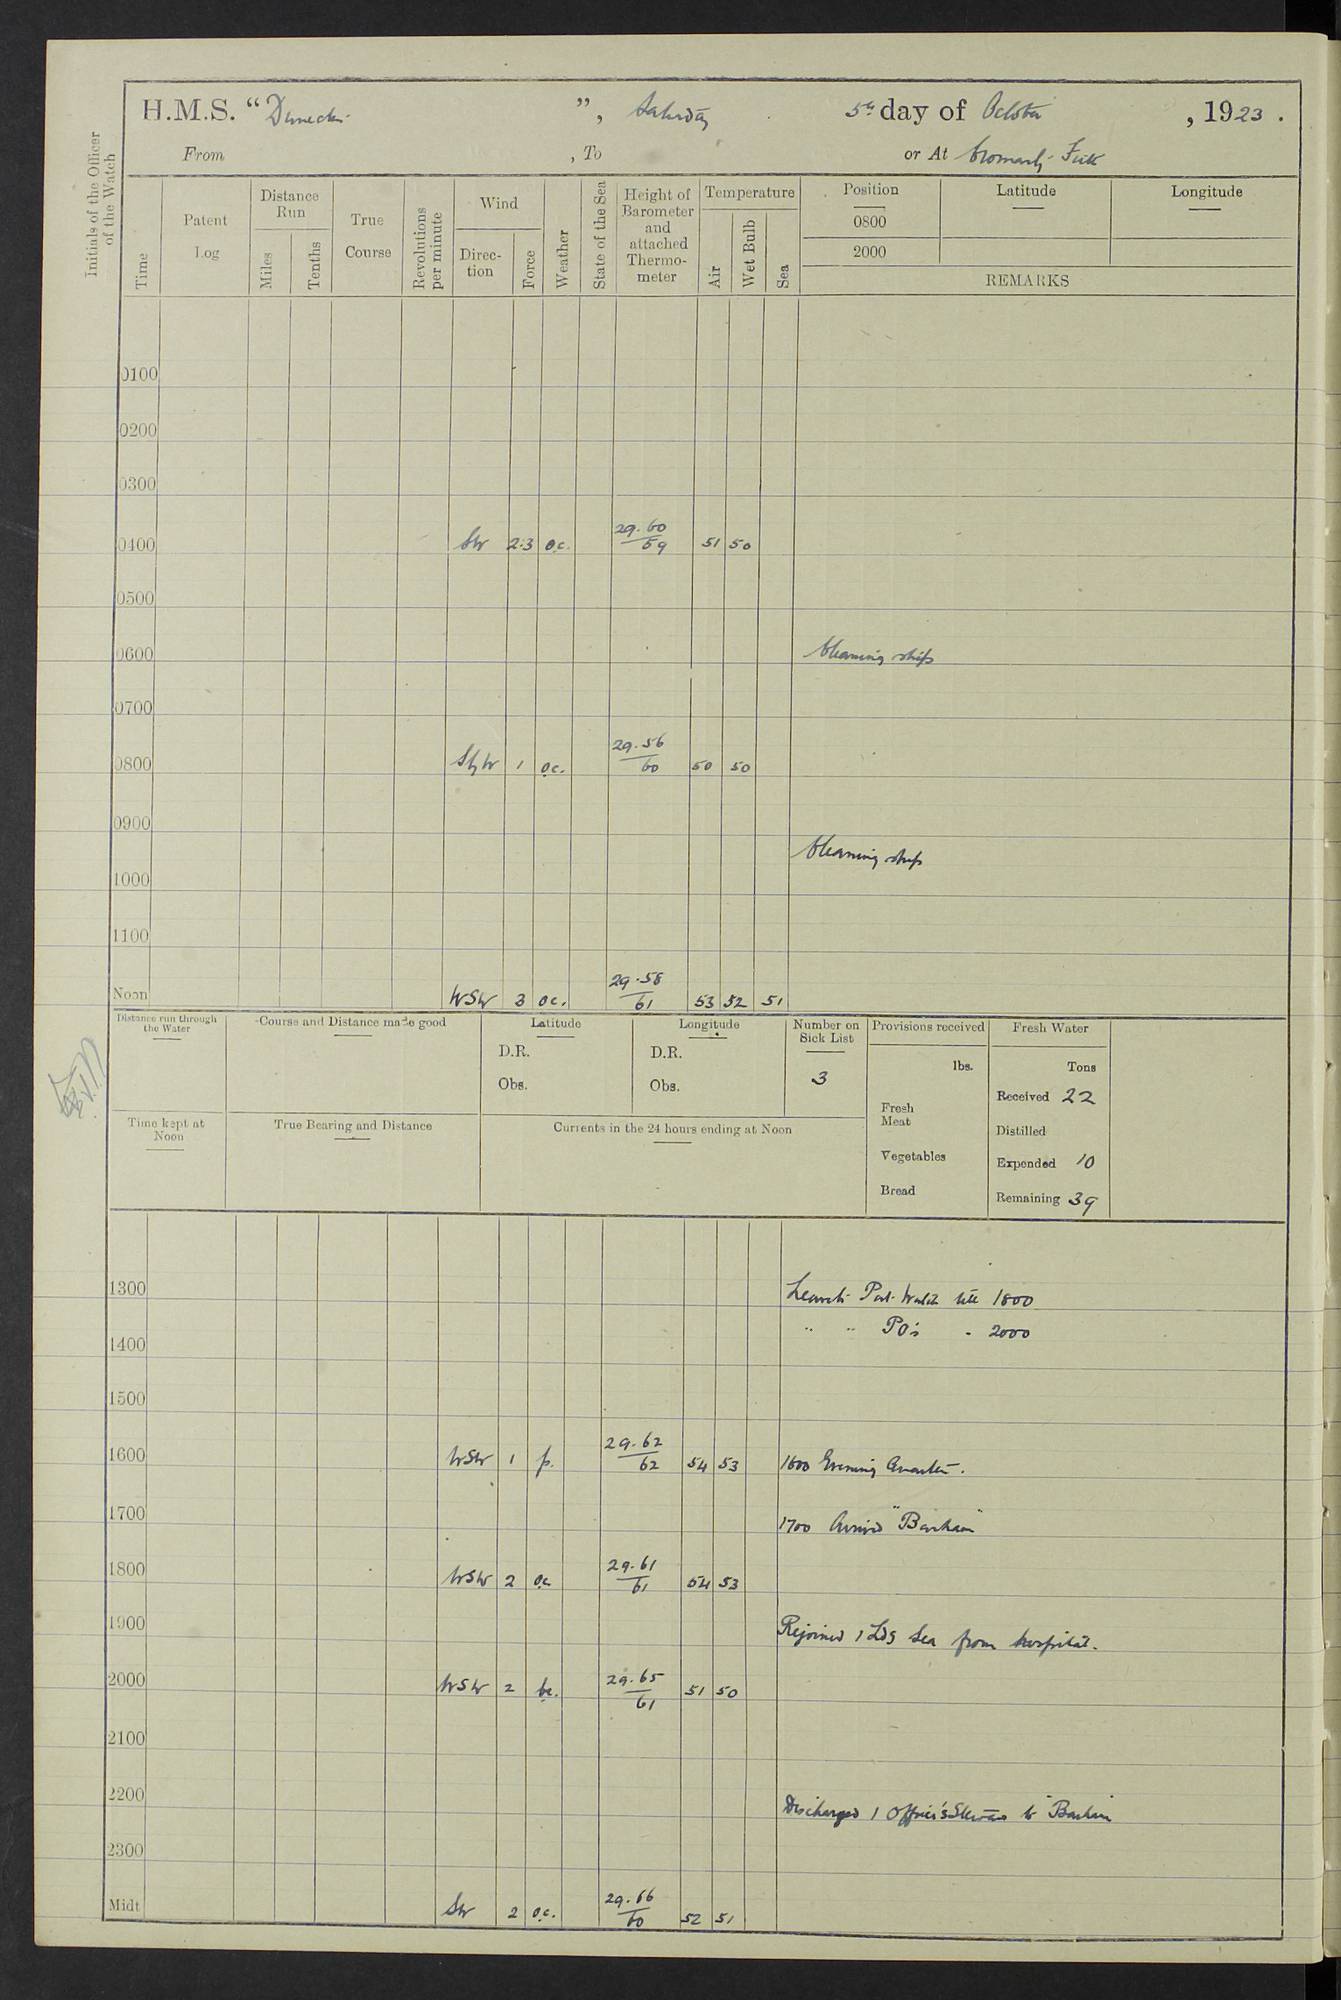 H.M.S. “ ”, Saturday 5th day of October, 1923.
From , To or At Cromarty Firth
Initials of the Officer of the Watch
Time
Patent Log
Distance Run
Miles
Tenths
True Course
Revolutions per minute
Wind
Direc-tion
Force
Weather
State of the Sea
Height of Barometer and attached Thermo-meter
Temperature
Air
Wet Bulb
Sea
Position
Latitude
Longitude
0800
2000
REMARKS
0100
0200
0300
0400 SW 2.3 oc. 29.60/59 51 50
0500
0600 Cleaning ship
0700
0800 SbyW 1 oc. 29.56/60 50 50
0900
Cleaning ship
1000
1100
Noon WSW 3 oc. 29.58/61 53 52 51
Distance run through the Water
Course and Distance made good
Latitude
D.R.
Obs.
Longitude
D.R.
Obs.
Number on Sick List
3
Provisions received
lbs.
Fresh Meat
Vegetables
Bread
Fresh Water
Tons
Received 22
Distilled
Expended 10
Remaining 39
Time kept at Noon
True Bearing and Distance
Currents in the 24 hours ending at Noon
1300 Leave to Port Watch till 1800
" " PO's - 2000
1400
1500
1600 WSW 1 p. 29.62/62 54 53 1600 Evening Quarters.
1700 1700 Arrived "Barham"
1800 WSW 2 oc 29.61/61 54 53
1900 Rejoined 1 Ldg Sea from hospital.
2000 WSW 2 bc. 29.65/61 51 50
2100
2200 Discharged 1 Officer's Steward to "Barham
2300
Midt SW 2 o.c. 29.66/60 52 51